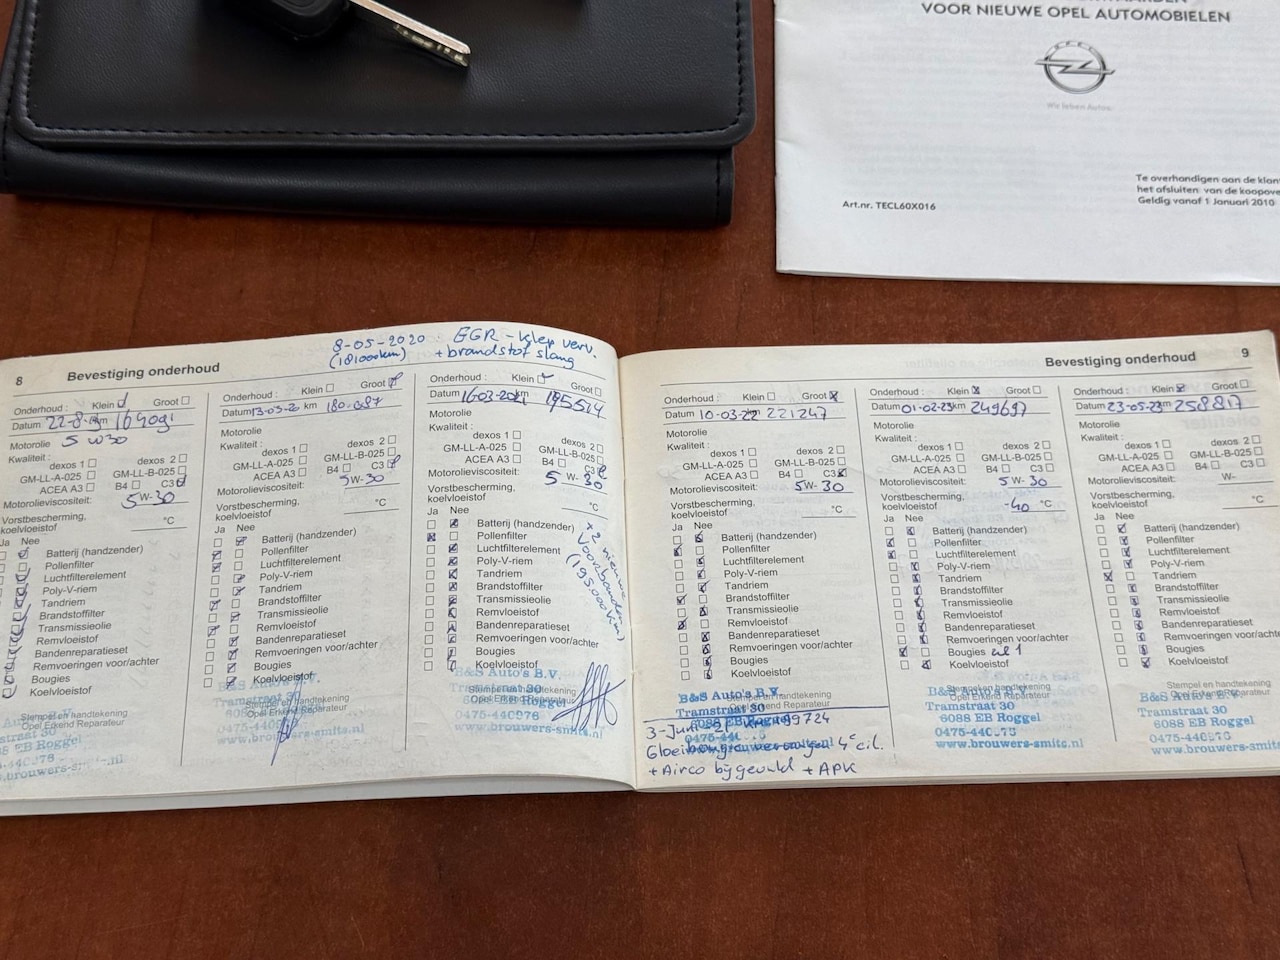 VOOR NIEUWE OPEL AUTOMOBIELEN
OPEL
Wir leben Autos.
Te overhandigen aan de klan
het afsluiten van de koopove
Geldig vanaf 1 Januari 2010
Art.nr. TECL60X016
8
Bevestiging onderhoud
8-05-2020 EGR-klep verv.
(181000km) + brandstof slang
Onderhoud : Klein Groot
Datum 22-8- km
Motorolie 5 W30
Kwaliteit :
dexos 1 dexos 2
GM-LL-A-025 GM-LL-B-025
ACEA A3 B4 C3
Motorolieviscositeit: 5W-30
Vorstbescherming,
koelvloeistof °C
Ja Nee
Batterij (handzender)
Pollenfilter
Luchtfilterelement
Poly-V-riem
Tandriem
Brandstoffilter
Transmissieolie
Remvloeistof
Bandenreparatieset
Remvoeringen voor/achter
Bougies
Koelvloeistof
Stempel en handtekening
Opel Erkend Reparateur
straat 30
www.brouwers-smits.nl
Onderhoud : Klein Groot
Datum 13-03-20 km 180.087
Motorolie
Kwaliteit :
dexos 1 dexos 2
GM-LL-A-025 GM-LL-B-025
ACEA A3 B4 C3
Motorolieviscositeit: 5W-30
Vorstbescherming,
koelvloeistof °C
Ja Nee
Batterij (handzender)
Pollenfilter
Luchtfilterelement
Poly-V-riem
Tandriem
Brandstoffilter
Transmissieolie
Remvloeistof
Bandenreparatieset
Remvoeringen voor/achter
Bougies
Koelvloeistof
B&S Auto's B.V.
Stempel en handtekening
Tramstraat 30
Opel Erkend Reparateur
www.brouwers-smits.nl
Onderhoud : Klein Groot
Datum 16-03-2021 km 195514
Motorolie
Kwaliteit :
dexos 1 dexos 2
GM-LL-A-025 GM-LL-B-025
ACEA A3 B4 C3
Motorolieviscositeit: 5W-30
Vorstbescherming,
koelvloeistof °C
Ja Nee
Batterij (handzender)
Pollenfilter
Luchtfilterelement
Poly-V-riem
Tandriem
Brandstoffilter
Transmissieolie
Remvloeistof
Bandenreparatieset
Remvoeringen voor/achter
Bougies
Koelvloeistof
+ 2 nieuwe
voorbanden
(195.000km)
B&S Auto's B.V.
Stempel en handtekening
Tramstraat 30
Opel Erkend Reparateur
6088 EB Roggel
0475-440976
www.brouwers-smits.nl
Bevestiging onderhoud
9
Onderhoud : Klein Groot
Datum 10-03-22 221247
Motorolie
Kwaliteit :
dexos 1 dexos 2
GM-LL-A-025 GM-LL-B-025
ACEA A3 B4 C3
Motorolieviscositeit: 5W-30
Vorstbescherming,
koelvloeistof °C
Ja Nee
Batterij (handzender)
Pollenfilter
Luchtfilterelement
Poly-V-riem
Tandriem
Brandstoffilter
Transmissieolie
Remvloeistof
Bandenreparatieset
Remvoeringen voor/achter
Bougies
Koelvloeistof
B&S Auto's B.V.
Stempel en handtekening
Tramstraat 30
Opel Erkend Reparateur
6088 EB Roggel
3-Juni-21
4e cil.
+ Airco bijgevuld + APK
Onderhoud : Klein Groot
Datum 01-02-23 km 249697
Motorolie
Kwaliteit :
dexos 1 dexos 2
GM-LL-A-025 GM-LL-B-025
ACEA A3 B4 C3
Motorolieviscositeit: 5W-30
Vorstbescherming,
koelvloeistof -40 °C
Ja Nee
Batterij (handzender)
Pollenfilter
Luchtfilterelement
Poly-V-riem
Tandriem
Brandstoffilter
Transmissieolie
Remvloeistof
Bandenreparatieset
Remvoeringen voor/achter
Bougies cil 1
Koelvloeistof
B&S Auto's B.V.
Stempel en handtekening
Tramstraat 30
Opel Erkend Reparateur
6088 EB Roggel
0475-440976
www.brouwers-smits.nl
Onderhoud : Klein Groot
Datum 23-05-23 km 258817
Motorolie
Kwaliteit :
dexos 1 dexos 2
GM-LL-A-025 GM-LL-B-025
ACEA A3 B4 C3
Motorolieviscositeit: W-
Vorstbescherming,
koelvloeistof °C
Ja Nee
Batterij (handzender)
Pollenfilter
Luchtfilterelement
Poly-V-riem
Tandriem
Brandstoffilter
Transmissieolie
Remvloeistof
Bandenreparatieset
Remvoeringen voor/achte
Bougies
Koelvloeistof
Stempel en handtekening
B&S Auto's B.V.
Opel Erkend Reparateur
Tramstraat 30
6088 EB Roggel
0475-440976
www.brouwers-smits.